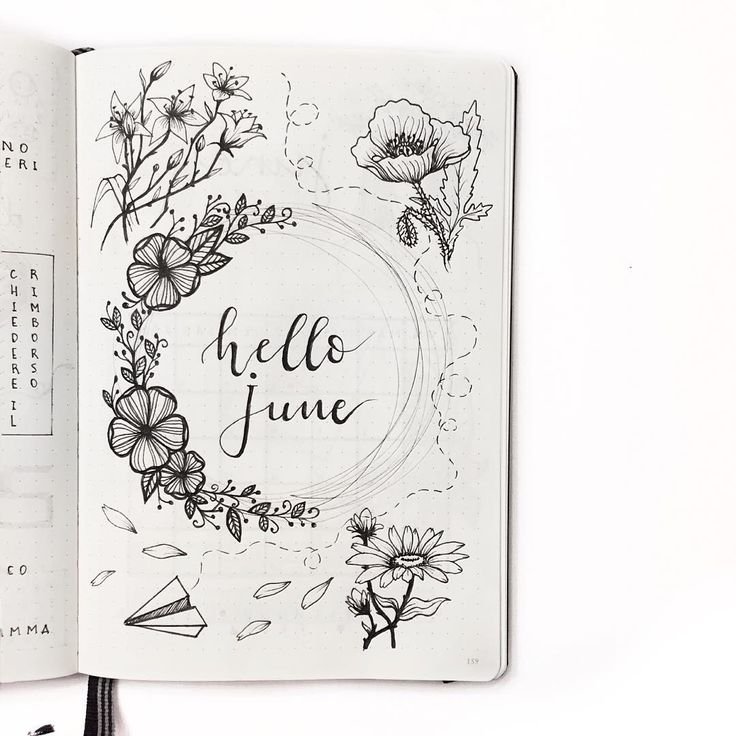 NO
ERI
CHIEDERE IL
RIMBORSO
CO
MMA
hello
june
159